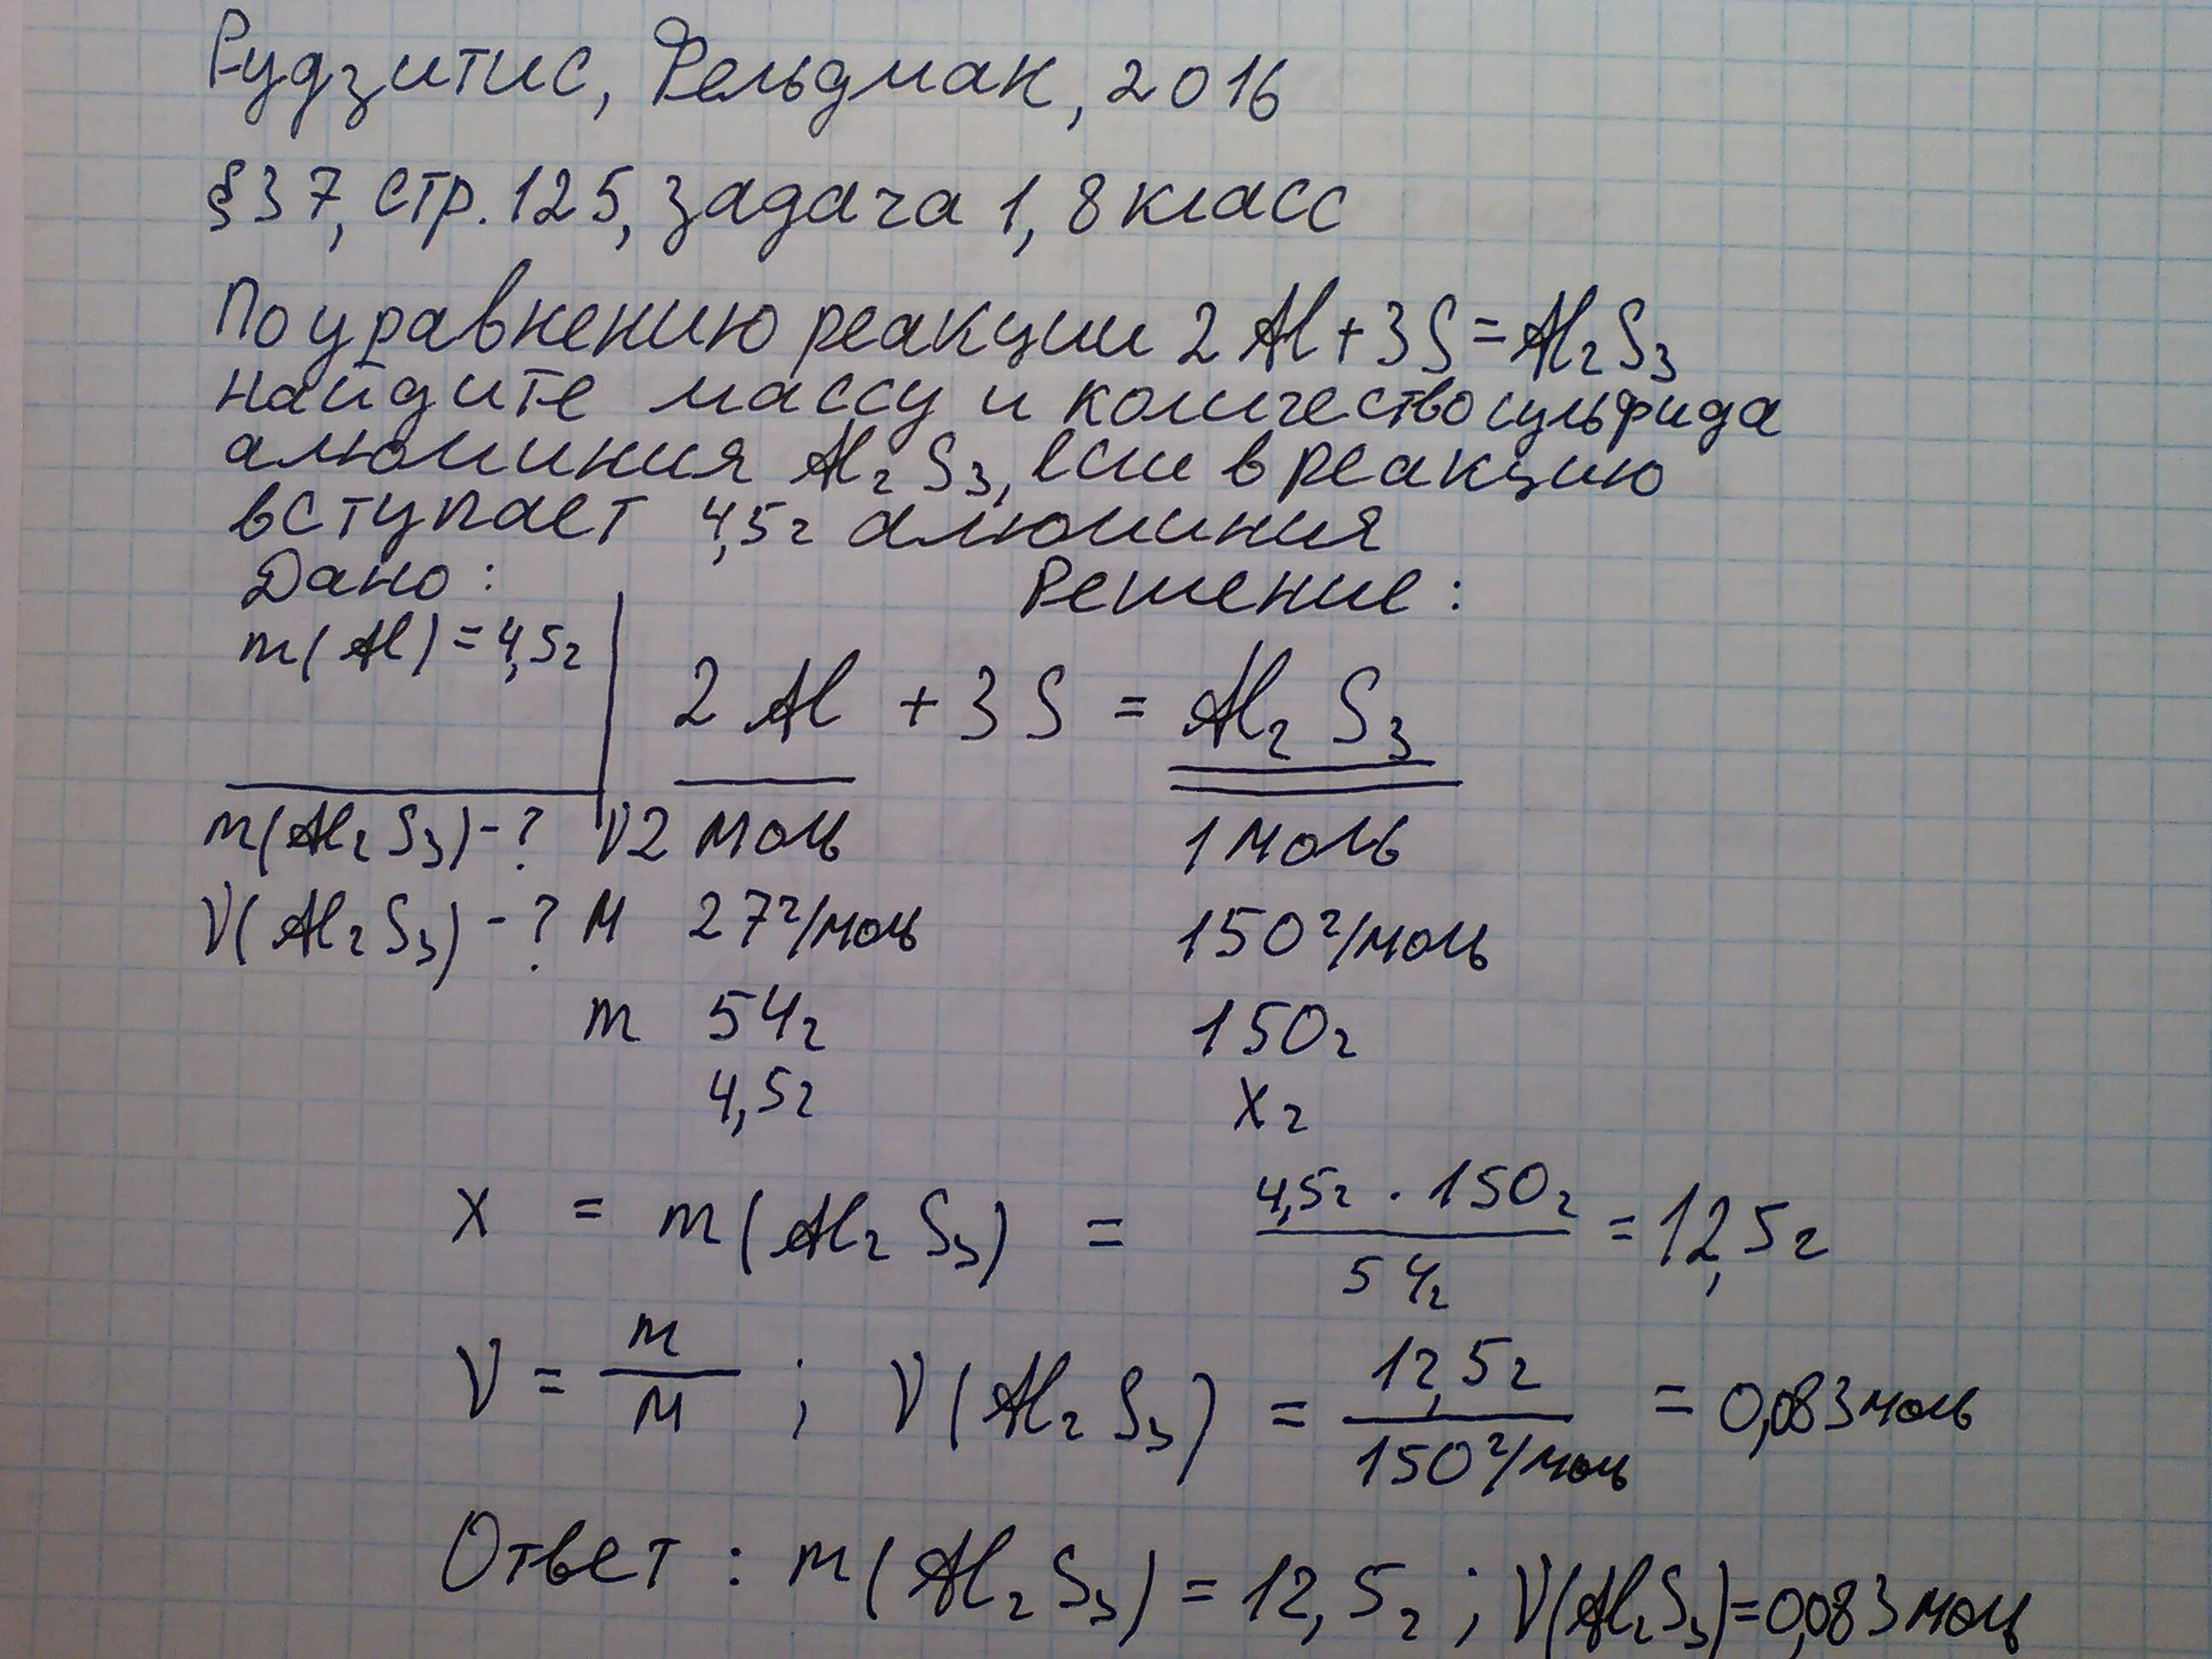 Рудзитис, Фельдман, 2016
§37, стр. 125, задача 1, 8 класс
По уравнению реакции 2Al+3S=Al₂S₃
найдите массу и количество сульфида
алюминия Al₂S₃, если в реакцию
вступает 4,5г алюминия
Дано: Решение:
m(Al)=4,5г
2Al + 3S = Al₂S₃
m(Al₂S₃)-? ν 2 моль 1 моль
ν(Al₂S₃)-? M 27г/моль 150г/моль
m 54г 150г
4,5г xг
x = m(Al₂S₃) = 4,5г · 150г / 54г = 12,5г
ν = m / M ; ν(Al₂S₃) = 12,5г / 150г/моль = 0,083моль
Ответ: m(Al₂S₃)=12,5г; ν(Al₂S₃)=0,083моль